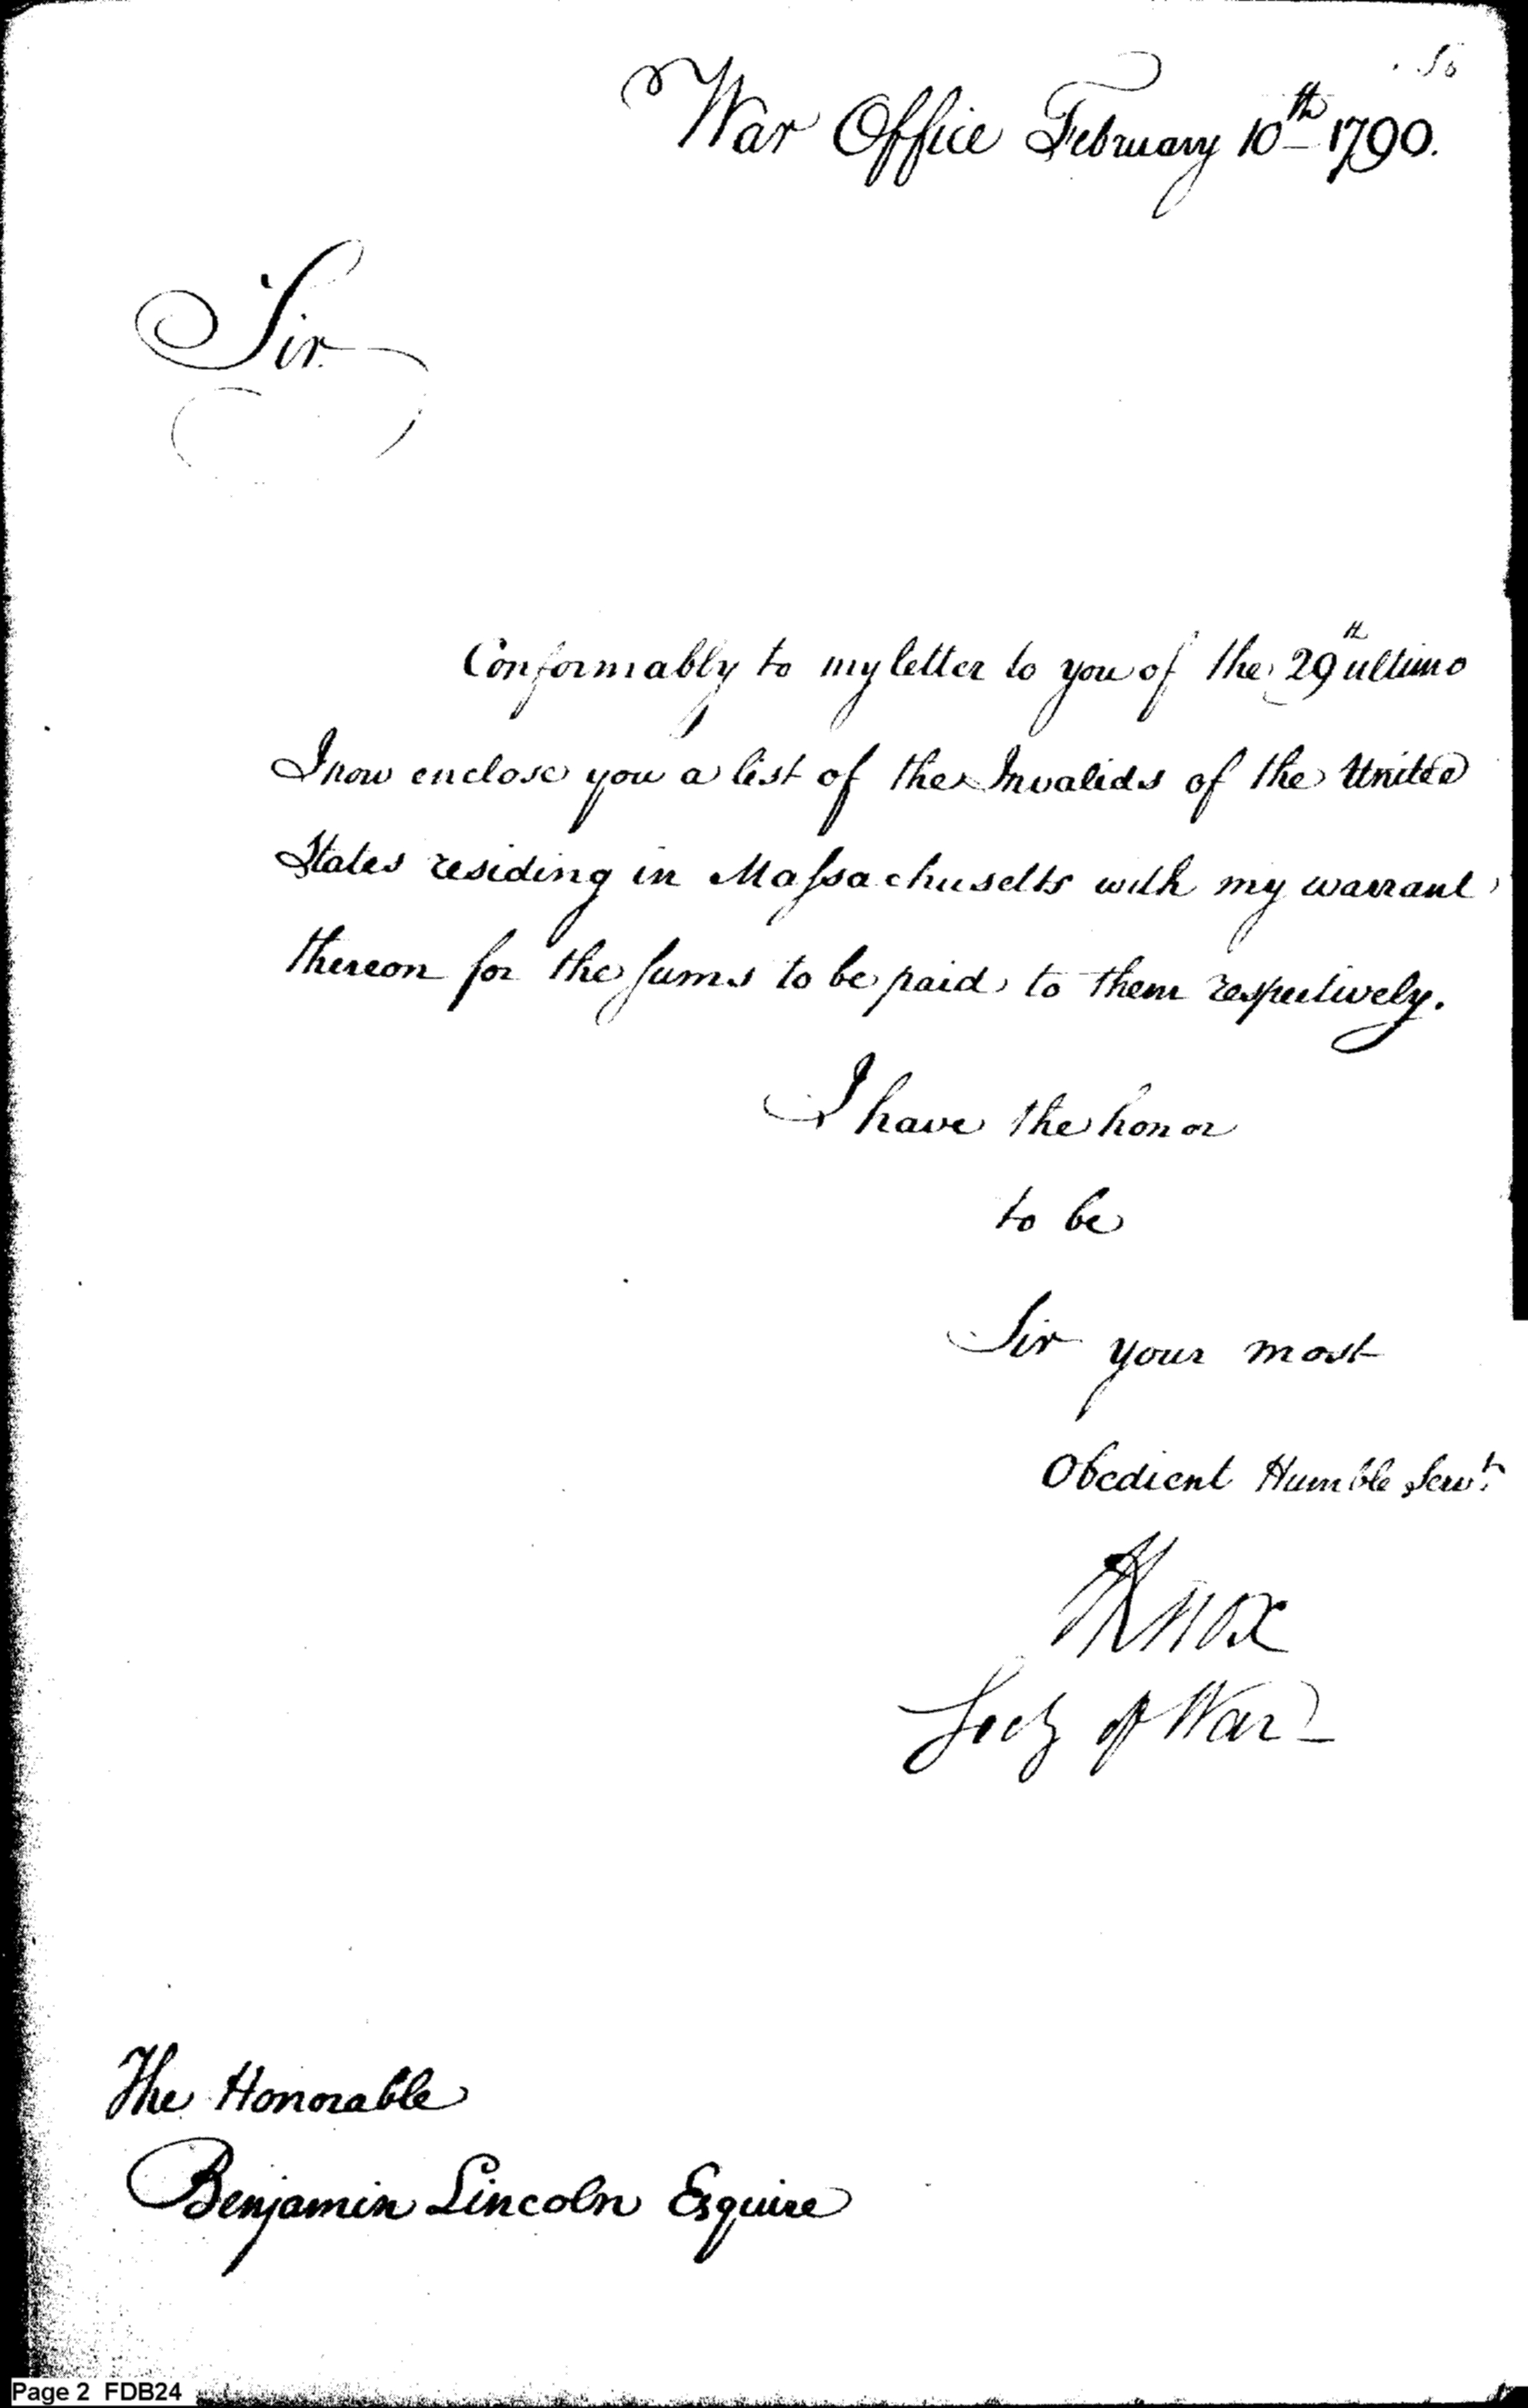 War Office February 10th 1790.
Sir
Conformably to my letter to you of the 29th ultimo
I now enclose you a list of the Invalids of the United
States residing in Massachusetts with my warrant
thereon for the sums to be paid to them respectively.
I have the honor
to be
Sir your most
Obedient Humble Servt.
HKnox
Secy of War
The Honorable
Benjamin Lincoln Esquire
Page 2 FDB24